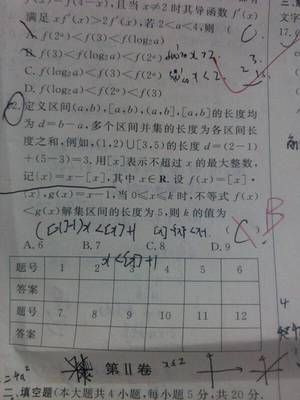 f(2)=f(4-x),且当x≠2时其导函数f'(x)
满足xf'(x)>2f'(x),若2<a<4,则 ( C.
A. f(2ᵃ)<f(3)<f(log₂a)
B. f(3)<f(log₂a)<f(2ᵃ)
C. f(log₂a)<f(3)<f(2ᵃ)
D. f(log₂a)<f(2ᵃ)<f(3)
12. 定义区间(a,b),[a,b),(a,b],[a,b]的长度均
为d=b-a,多个区间并集的长度为各区间长
度之和,例如,(1,2)∪[3,5)的长度d=(2-1)
+(5-3)=3.用[x]表示不超过x的最大整数,
记{x}=x-[x],其中x∈R.设f(x)=[x]·
{x},g(x)=x-1,当0≤x≤k时,不等式f(x)
<g(x)解集区间的长度为5,则k的值为
([x]-1)x<[x]²+1 ( C ) B
A. 6 B. 7 C. 8 D. 9
x<[x]+1
题号 1 2 3 4 5 6
答案
题号 7 8 9 10 11 12
答案
第Ⅱ卷 x≤2
二、填空题(本大题共4小题,每小题5分,共20分.